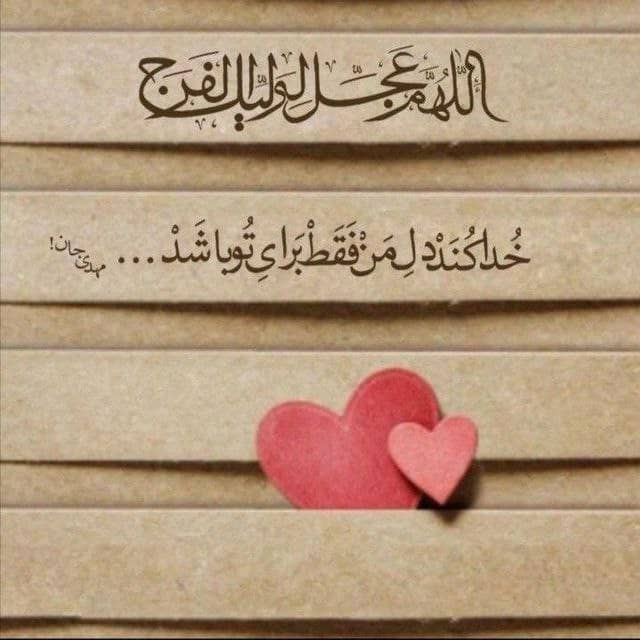 اَللّهُمَّ عَجِّلْ لِوَلِیِّکَ الْفَرَج
خُدا کُنَدْ دِلِ مَنْ فَقَطْ بَرایِ تُو باشَدْ ...
مهدی جان!